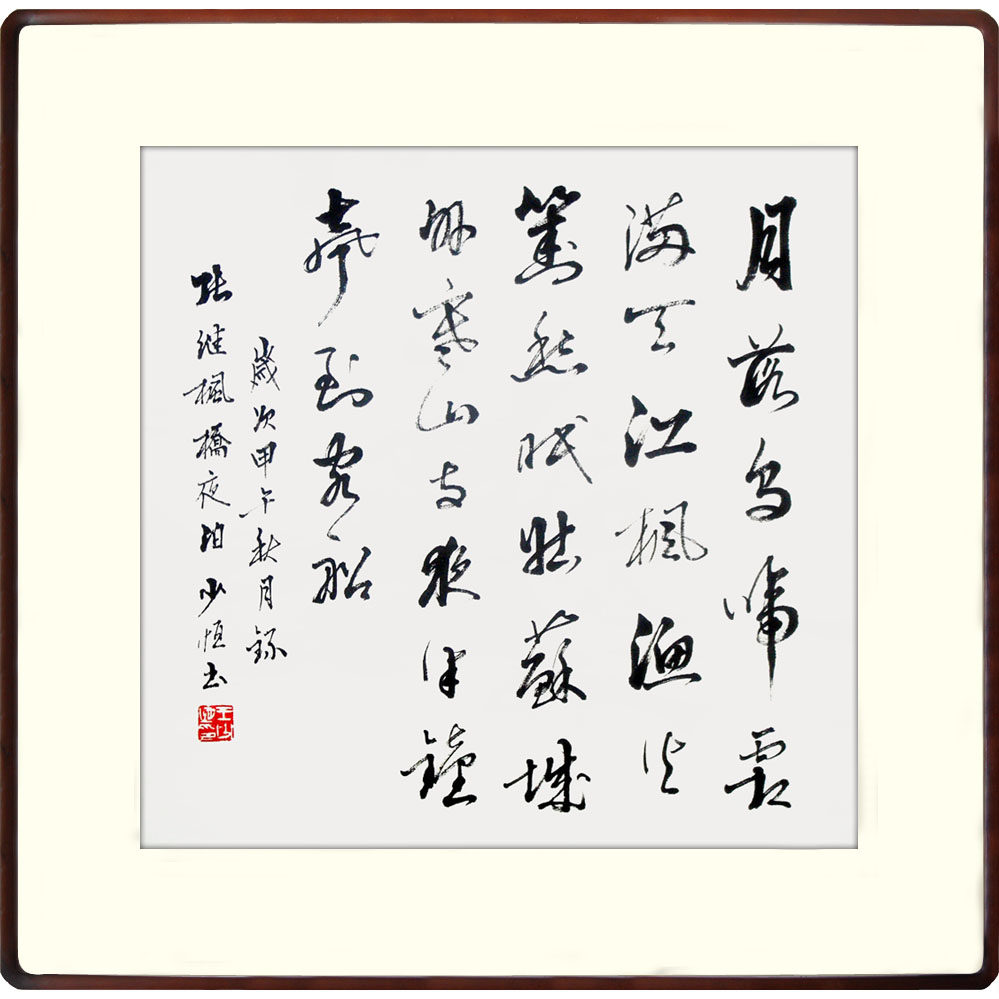 月落烏啼霜
滿天江楓漁火
對愁眠姑蘇城
外寒山寺夜半鐘
聲到客船
歲次甲午秋月錄
張繼楓橋夜泊 少恒書
王少恒印